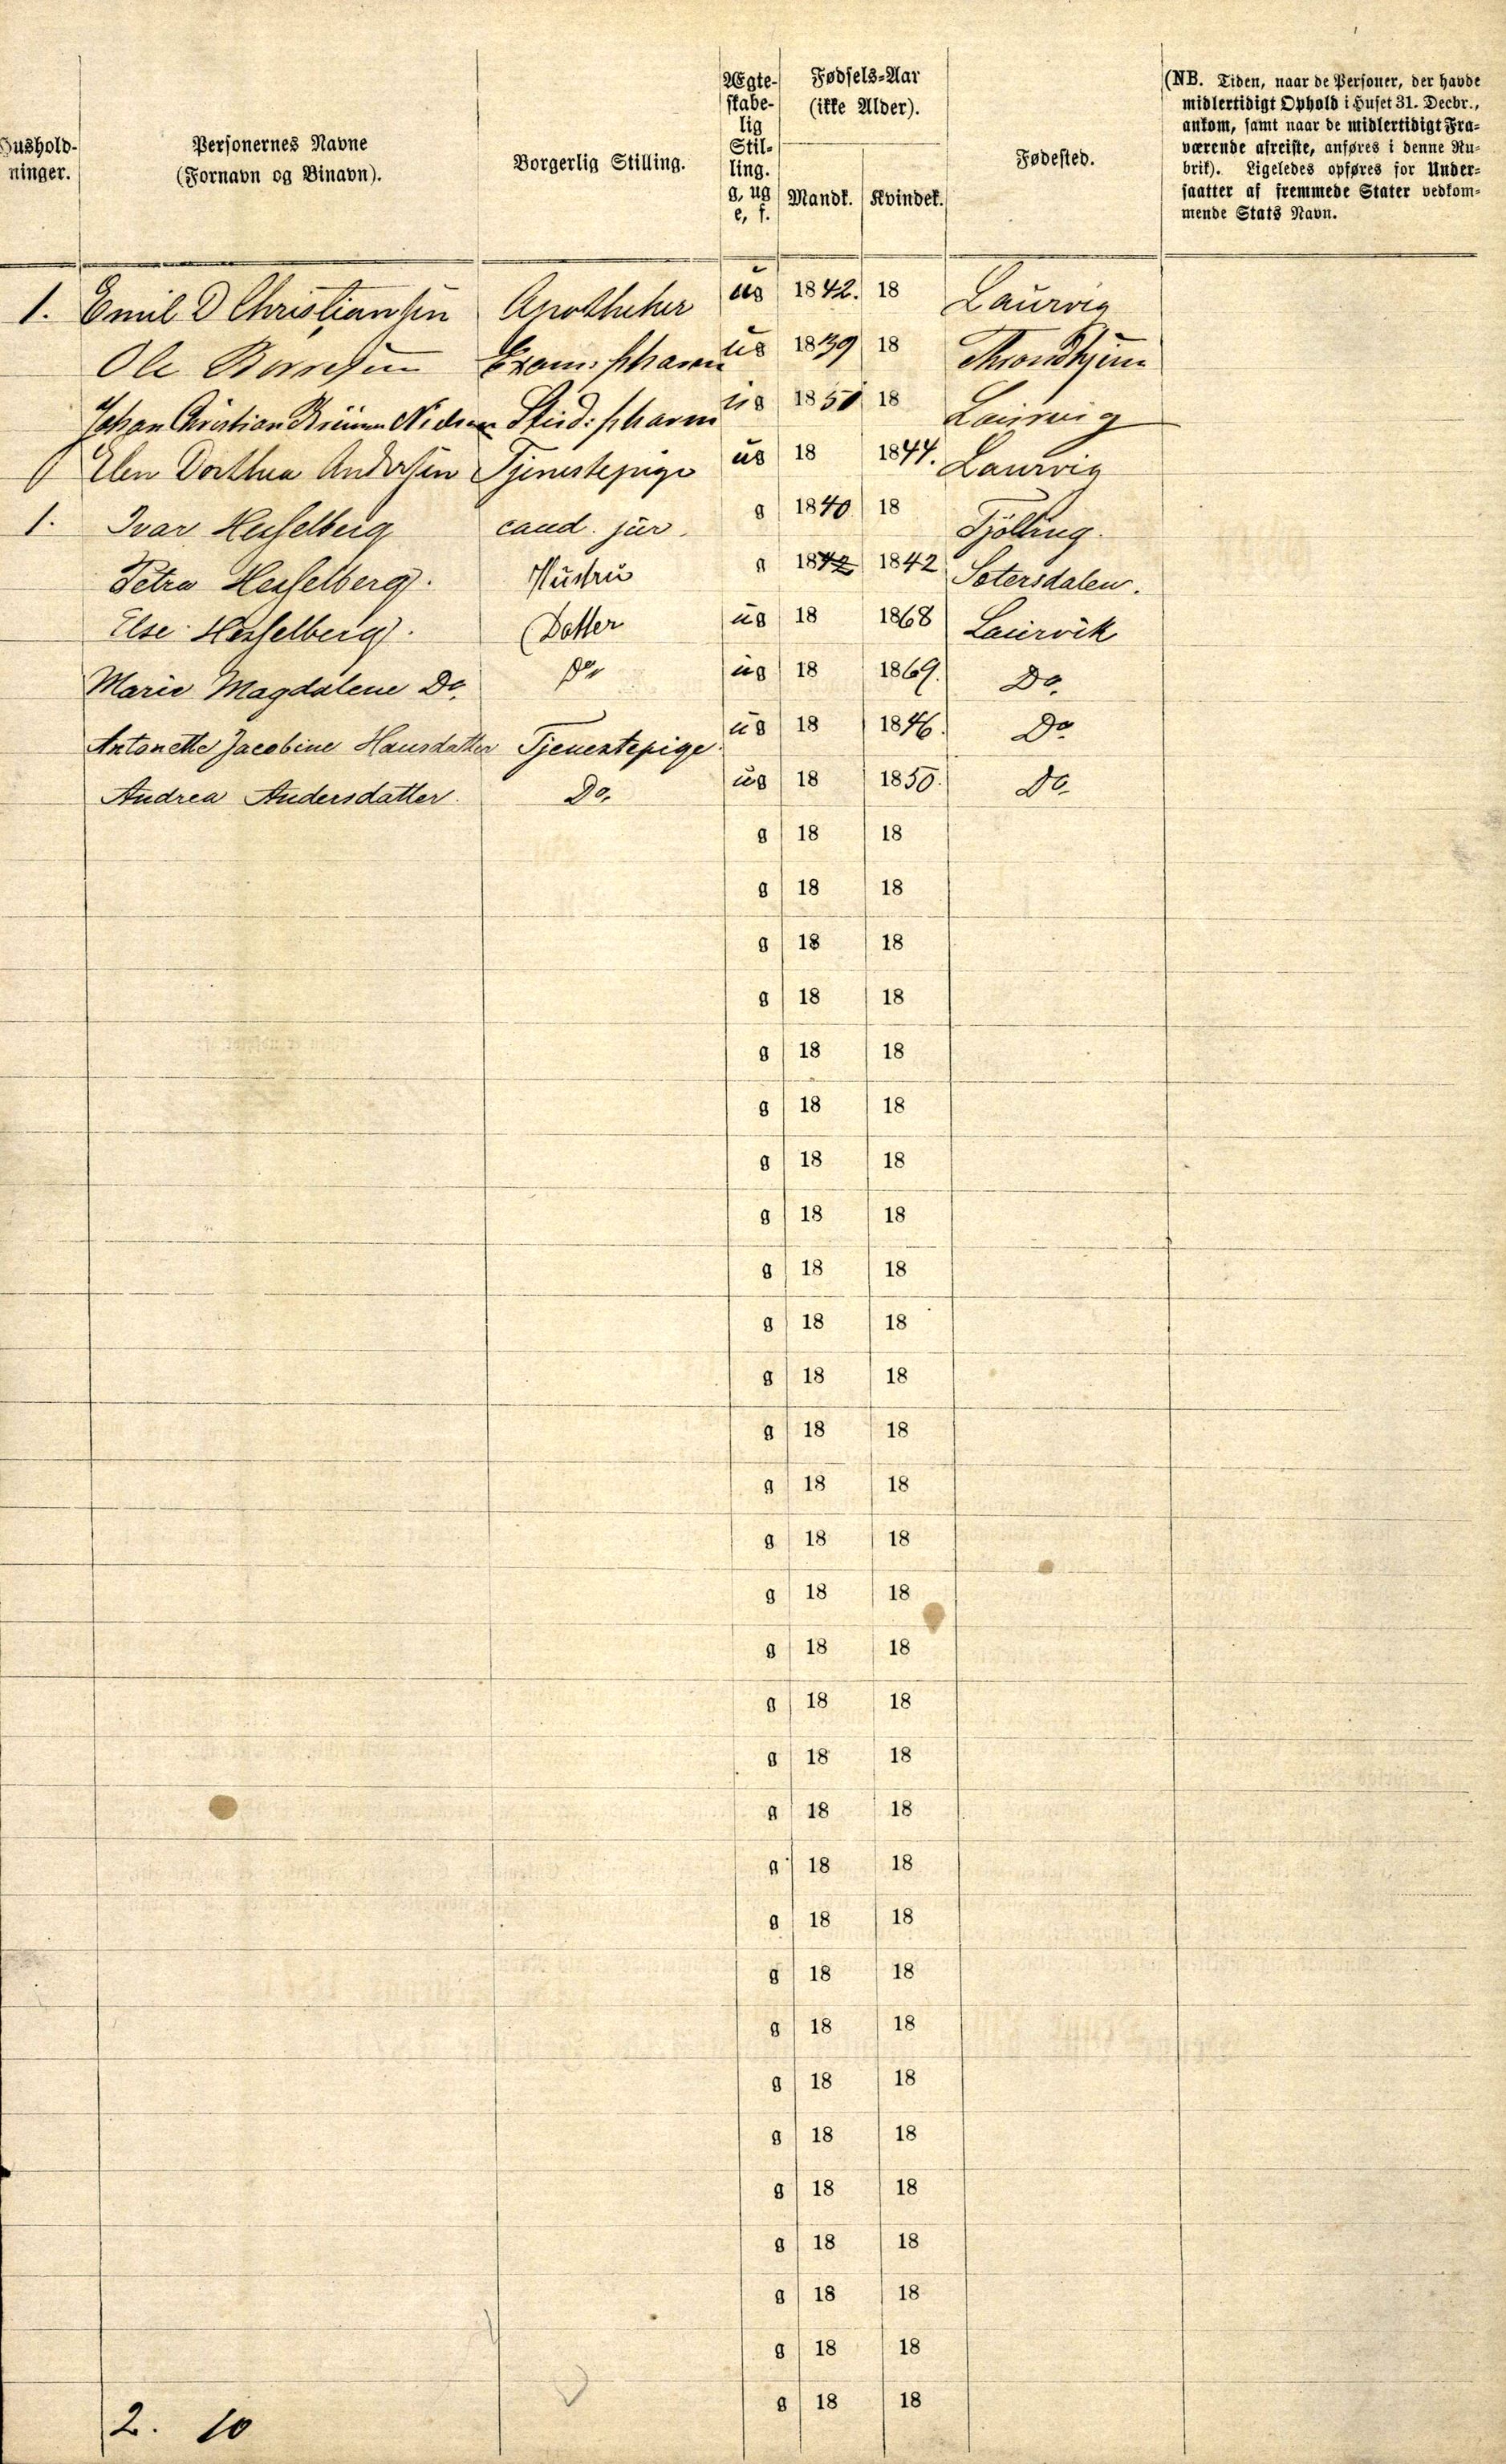 Hushold-
ninger.
Personernes Navne
(Fornavn og Binavn).
Borgerlig Stilling.
Ægte-
skabe-
lig
Stil-
ling.
g, ug
e, f.
Fødsels-Aar
(ikke Alder).
Mandk. Kvindek.
Fødested.
(NB. Tiden, naar de Personer, der havde
midlertidigt Ophold i Huset 31. Decbr.,
ankom, samt naar de midlertidigt Fra-
værende afreiste, anføres i denne Ru-
brik). Ligeledes opføres for Under-
saatter af fremmede Stater vedkom-
mende Stats Navn.
1. Emil D Christiansen Apotheker ug 1842. 18 Laurvig
Ole Bernsen Exam: pharm ug 1839 18 Throndhjem
Johan Christian Nielsen Stud: pharm ug 1851 18 Laurvig
Elen Dorthea Andersen Tjenestepige ug 18 1844. Laurvig
1. Ivar Hesselberg cand. jur. g 1840 18 Tjölling.
Petra Hesselberg. Hustru g 1842 1842 Setersdalen.
Else Hesselberg. Datter ug 18 1868 Laurvik
Marie Magdalene Do. Do. ug 18 1869. Do.
Antonette Jacobine Hansdatter Tjenestepige. ug 18 1846. Do.
Andrea Andersdatter. Do. ug 18 1850. Do.
g 18 18
g 18 18
g 18 18
g 18 18
g 18 18
g 18 18
g 18 18
g 18 18
g 18 18
g 18 18
g 18 18
g 18 18
g 18 18
g 18 18
g 18 18
g 18 18
g 18 18
g 18 18
g 18 18
g 18 18
g 18 18
g 18 18
g 18 18
g 18 18
g 18 18
g 18 18
g 18 18
g 18 18
g 18 18
g 18 18
2. 10